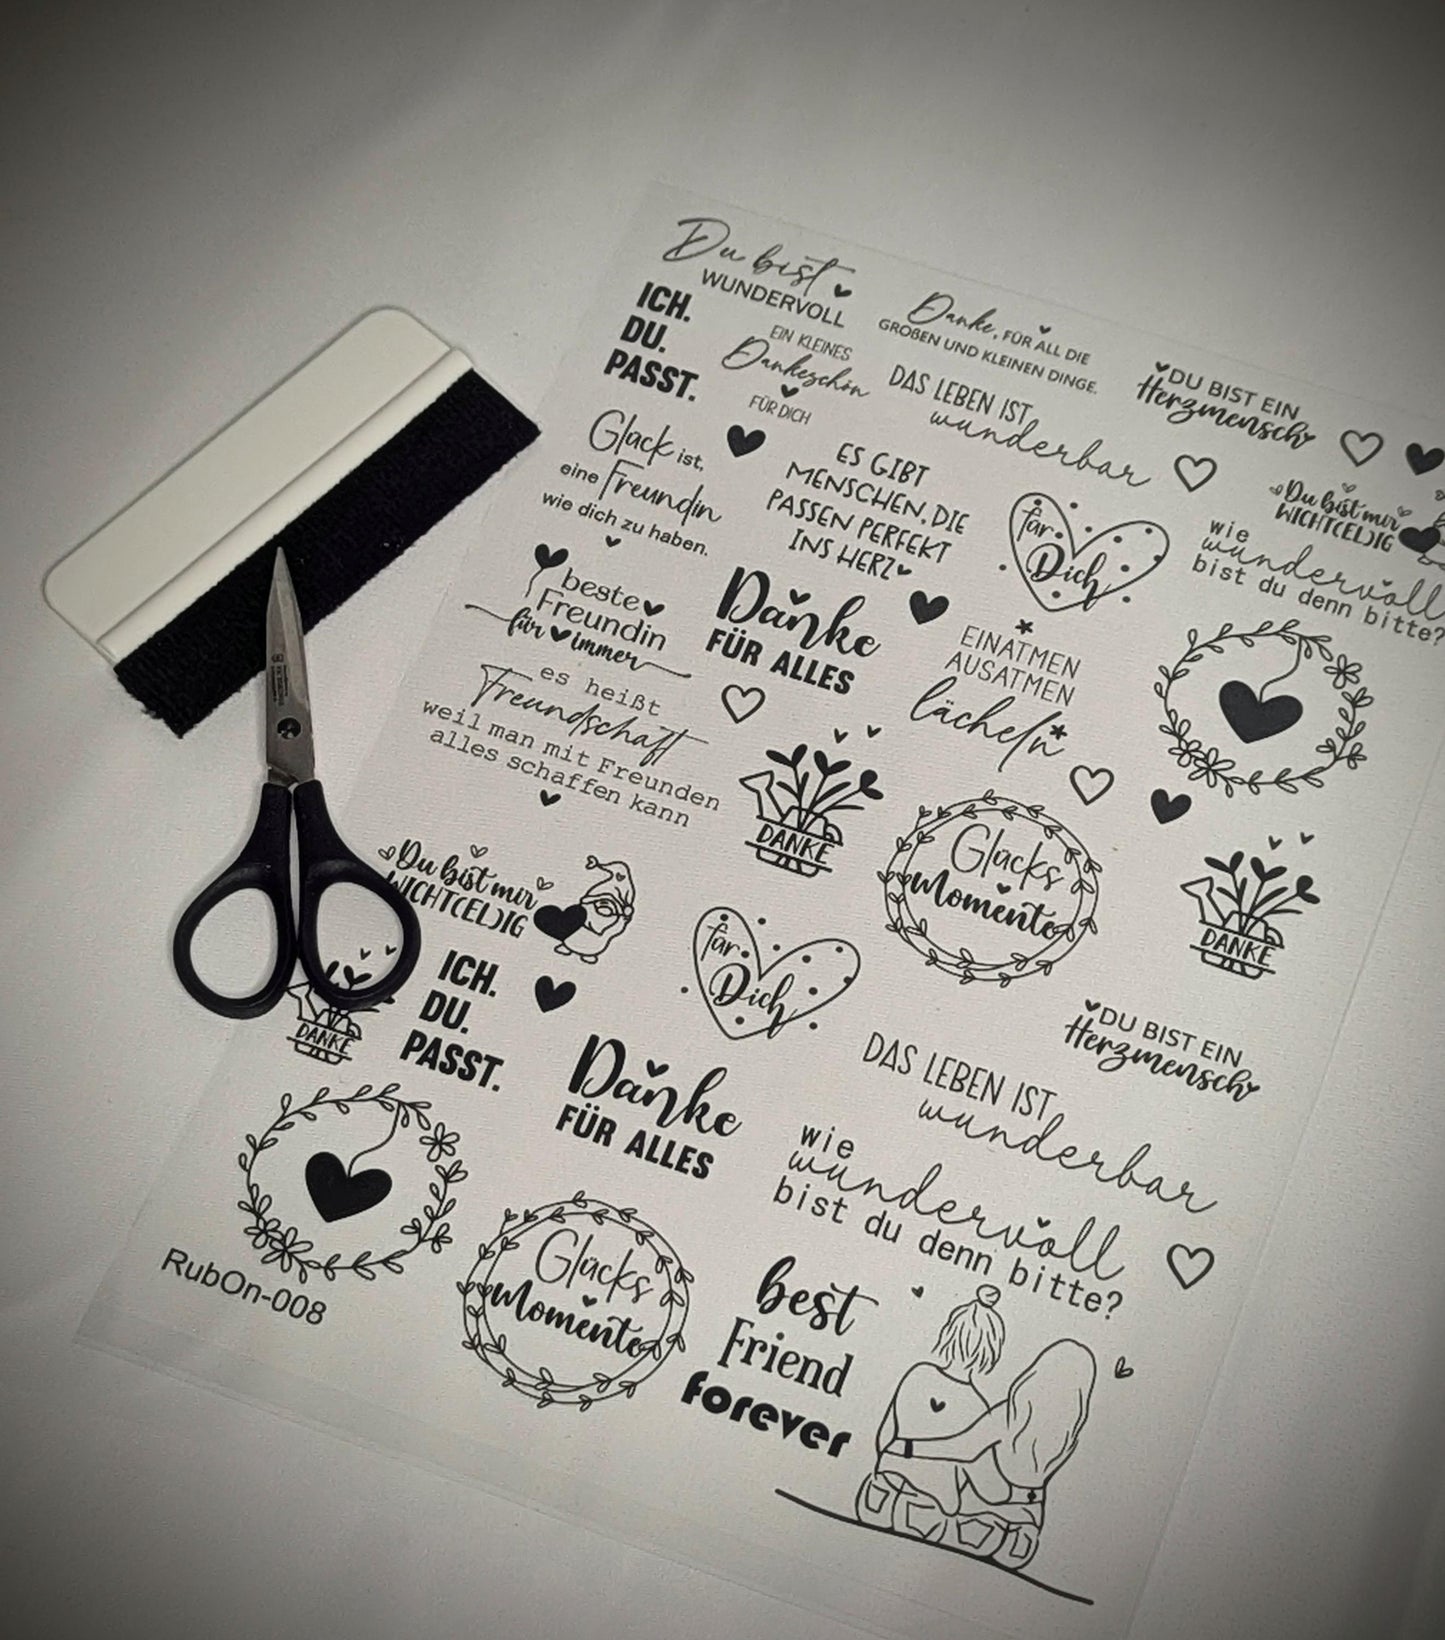 Du bist
WUNDERVOLL
ICH.
DU.
PASST.
EIN KLEINES
Dankeschön
FÜR DICH
Danke, FÜR ALL DIE
GROßEN UND KLEINEN DINGE.
DAS LEBEN IST
wunderbar
DU BIST EIN
Herzmensch
Glück ist,
eine Freundin
wie dich zu haben.
ES GIBT
MENSCHEN, DIE
PASSEN PERFEKT
INS HERZ
für
Dich
Du bist mir
WICHT(EL)IG
wie
wundervoll
bist du denn bitte?
beste
Freundin
für immer
Danke
FÜR ALLES
EINATMEN
AUSATMEN
lächeln
es heißt
Freundschaft
weil man mit Freunden
alles schaffen kann
DANKE
Glücks
Momente
DANKE
Du bist mir
WICHT(EL)IG
für
Dich
DU BIST EIN
Herzmensch
DANKE
ICH.
DU.
PASST.
Danke
FÜR ALLES
DAS LEBEN IST
wunderbar
wie
wundervoll
bist du denn bitte?
Glücks
Momente
best
Friend
forever
RubOn-008